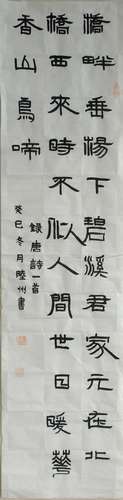 橋畔垂楊下碧溪君家元在北
橋西來時不似人間世日暖華
香山鳥啼
錄唐詩一首
癸巳冬月陸州書